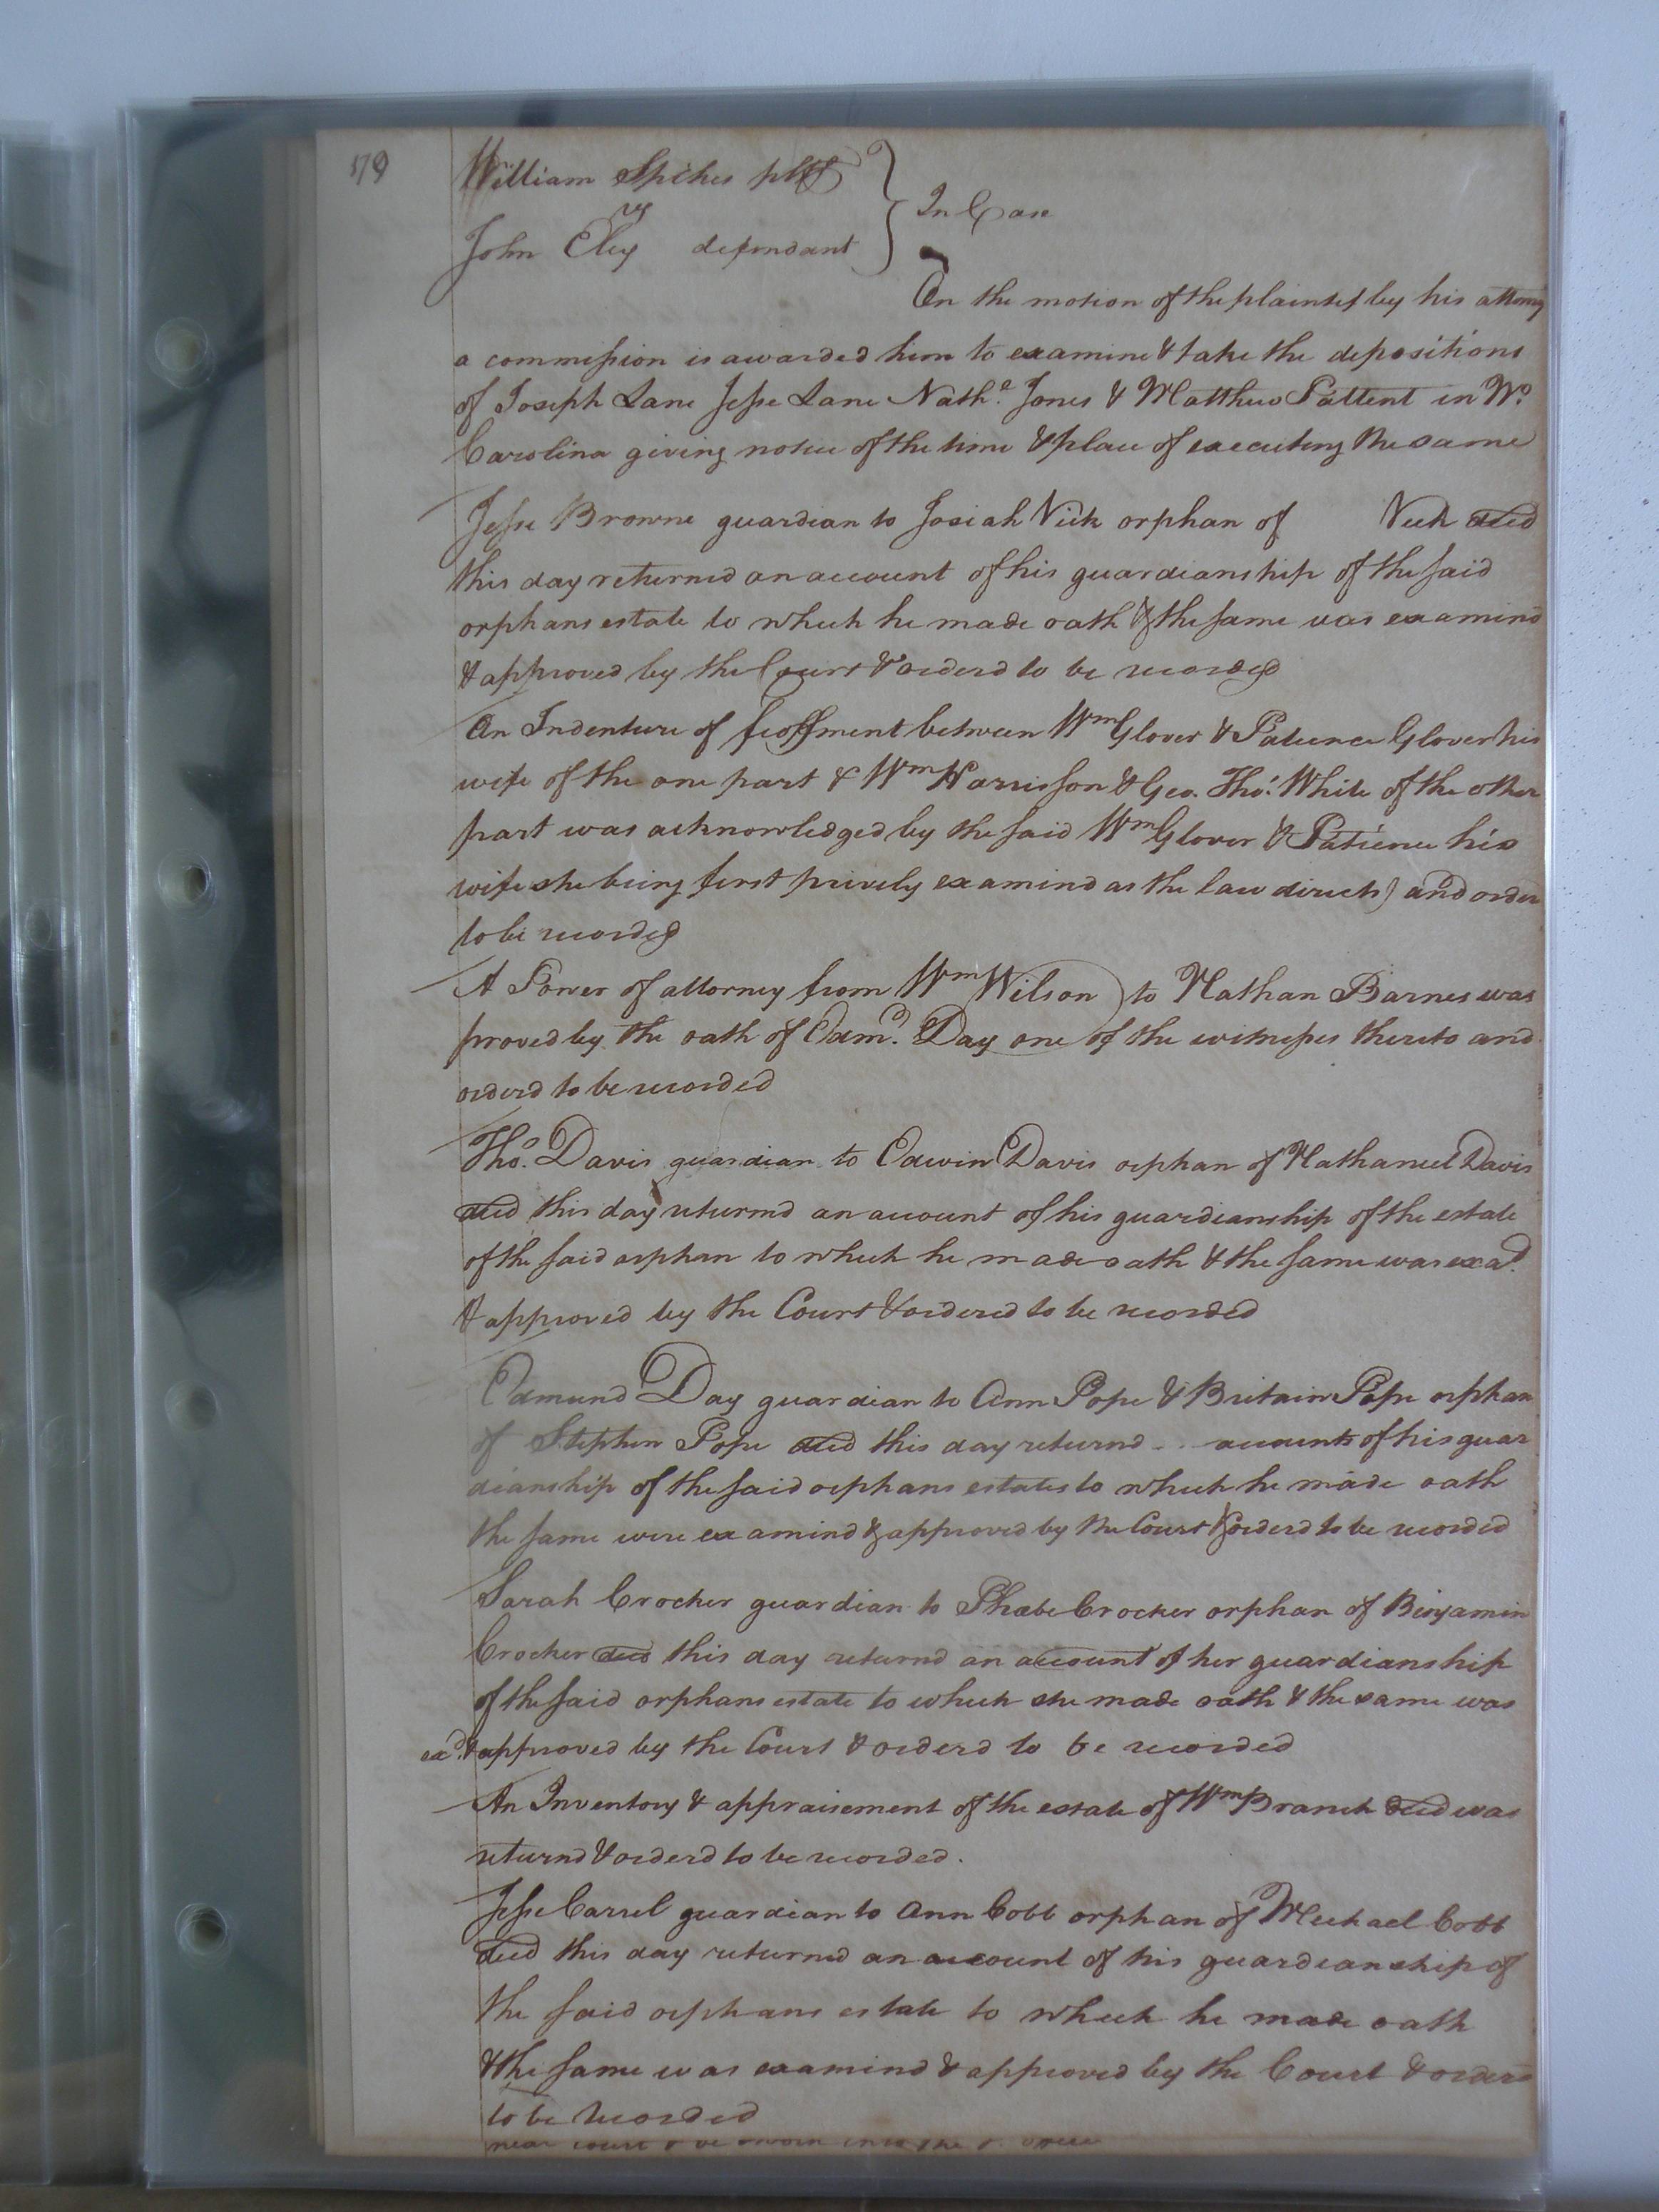 179
William Spikes pltf
vs
John Eley defendant
In Case
On the motion of the plaintif by his attorny
a commission is awarded him to examine & take the depositions
of Joseph Lane Jesse Lane Nathl. Jones & Matthew in No.
Carolina giving notice of the time & place of executing the same
Jesse Browne guardian to Josiah Vick orphan of Vick decd
this day returned an account of his guardianship of the said
orphans estate to which he made oath & the same was examind
& approved by the Court & orderd to be recorded
An Indenture of feoffment between Wm Glover & Patience Glover his
wife of the one part & Wm Harrisson & Geo. Tho: White of the other
part was acknowledged by the said Wm Glover & Patience his
wife she being first privily examind as the law directs) and order
to be recorded
A Power of attorney from Wm Wilson to Nathan Barnes was
proved by the oath of Edmd. Day one of the witnesses thereto and
orderd to be recorded
Tho. Davis guardian to Edwin Davis orphan of Nathaniel Davis
decd this day returnd an account of his guardianship of the estate
of the said orphan to which he made oath & the same was exad.
& approved by the Court & ordered to be recorded
Edmund Day guardian to Ann Pope & Britain Pope orphan
of Stephen Pope decd this day returnd accounts of his guar
dianship of the said orphans estates to which he made oath
the same were examind & approved by the Court & orderd to be recorded
Sarah Crocker guardian to Phœbe Crocker orphan of Benjamin
Crocker decd this day returnd an account of her guardianship
of the said orphans estate to which she made oath & the same was
exd. & approved by the Court & orderd to be recorded
An Inventory & appraisement of the estate of Wm Branch decd was
returnd & orderd to be recorded.
Jesse Carrel guardian to Ann Cobb orphan of Michael Cobb
decd this day returned an account of his guardianship of
the said orphans estate to which he made oath
& the same was examind & approved by the Court & orderd
to be recorded